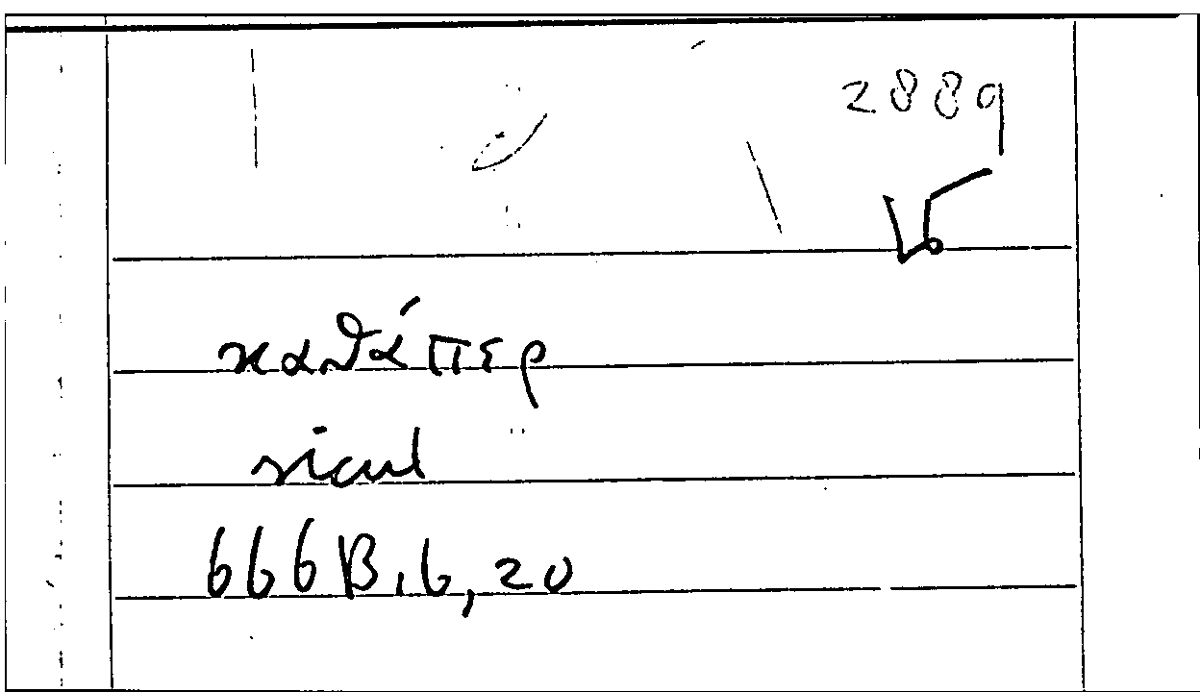 2889
καθάπερ
sicut
666B,6,20